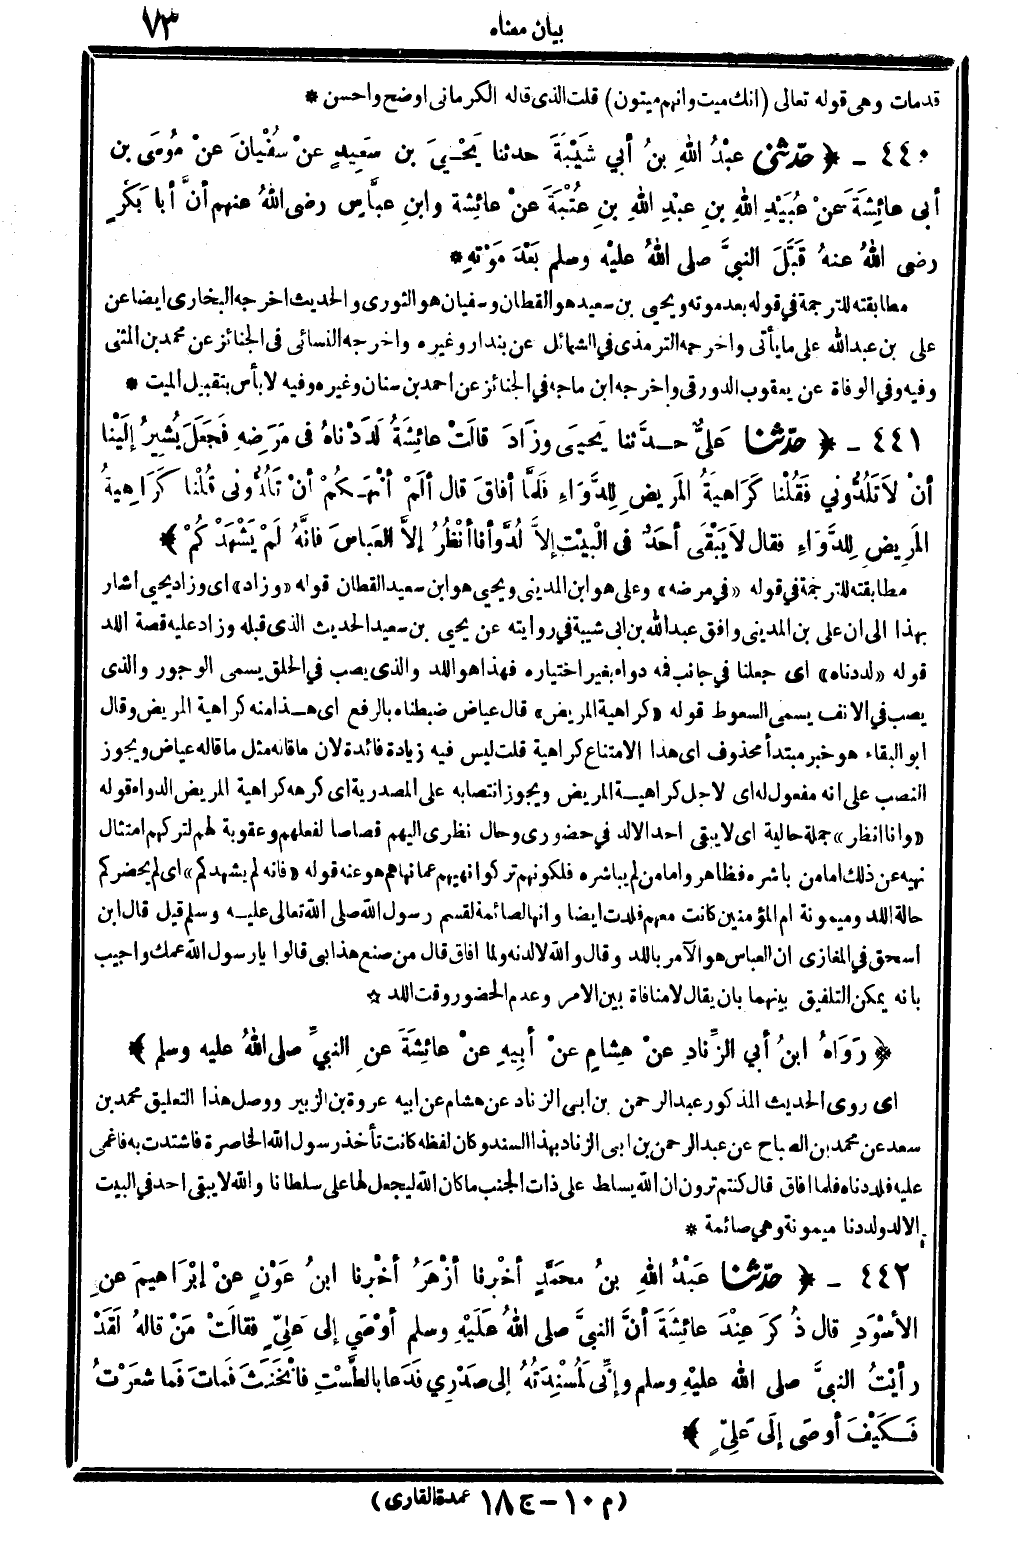 بيان معناه ٧٣
قدمات وهى قوله تعالى (انك ميت وانهم ميتون) قلت الذى قاله الكرمانى اوضح واحسن *
٤٤٠ - ﴿ حدّثنى عبْدُ اللهِ بنُ أبي شَيْبَةَ حدثنا يَحْيىَ بن سَعِيدٍ عنْ سُفْيانَ عنْ مُوسَى بن
أبى عائِشَةَ عنْ عُبَيْدِ اللهِ بنِ عبْدِ اللهِ بنِ عُتْبَةَ عنْ عائِشة وابنِ عبَّاس رضى اللهُ عنهم أنَّ أبا بَكْرٍ
رضى اللهُ عنهُ قَبَّلَ النبيَّ صلى اللهُ عليْه وسلم بَعْدَ مَوْتهِ *
مطابقته للترجمة في قوله بعد موته ويحيى بن سعيد هو القطان وسفيان هو الثورى والحديث اخرجه البخارى ايضا عن
على بن عبدالله على ما يأتى واخرجه الترمذى في الشمائل عن بندار وغيره واخرجه النسائى فى الجنائز عن محمد بن المثنى
وفيه وفي الوفاة عن يعقوب الدورقى واخرجه ابن ماجه في الجنائز عن احمد بن سنان وغيره وفيه لا بأس بتقبيل الميت *
٤٤١ - ﴿ حدّثنا عَليٌّ حدَّثنا يَحيىَ وزادَ قالَتْ عائِشَةُ لَدَدْناهُ فى مَرَضِهِ فَجَعَلَ يُشِيرُ إلَيْنا
أنْ لاَ تَلُدُّوني فَقُلْنا كَرَاهِيَةُ المَرِيضِ لِلدَّوَاءِ فَلمَّا أفاقَ قال ألَمْ أنْهَكُمْ أنْ تَلُدُّونى قُلْنا كَرَاهِيةُ
المَرِيضِ لِلدَّوَاءِ فقال لاَ يَبْقَى أحَدٌ فى الْبيْتِ إلاَّ لُدَّ وأنا أنْظُرُ إلاَّ العَباسَ فانَّهُ لَمْ يَشْهَدْكُمْ ﴾
مطابقته للترجمة في قوله «في مرضه» وعلى هو ابن المدينى ويحيى هو ابن سعيد القطان قوله «وزاد» اى وزاد يحيى اشار
بهذا الى ان على بن المدينى وافق عبدالله بن ابى شيبة في روايته عن يحيى بن سعيد الحديث الذى قبله وزاد عليه قصة اللد
قوله «لددناه» اى جعلنا في جانب فمه دواء بغير اختياره فهذا هو اللد والذى يصب في الحلق يسمى الوجور والذى
يصب في الانف يسمى السعوط قوله «كراهية المريض» قال عياض ضبطناه بالرفع اى هذا منه كراهية المريض وقال
ابو البقاء هو خبر مبتدأ محذوف اى هذا الامتناع كراهية قلت ليس فيه زيادة فائدة لان ما قاله مثل ما قاله عياض ويجوز
النصب على انه مفعول له اى لاجل كراهية المريض ويجوز انتصابه على المصدرية اى كرهه كراهية المريض الدواء قوله
«وانا انظر» جملة حالية اى لا يبقى احد الا لد في حضورى وحال نظرى اليهم قصاصا لفعلهم وعقوبة لهم لتركهم امتثال
نهيه عن ذلك اما من باشره فظاهر واما من لم يباشره فلكونهم تركوا نهيهم عما نهاهم هو عنه قوله «فانه لم يشهدكم» اى لم يحضركم
حالة اللد وميمونة ام المؤمنين كانت معهم فلدت ايضا وانها لصائمة لقسم رسول الله صلى الله تعالى عليه وسلم قيل قال ابن
اسحق في المغازى ان العباس هو الآمر باللد وقال والله لالدنه ولما افاق قال من صنع هذا بى قالوا يا رسول الله عمك واجيب
بانه يمكن التلفيق بينهما بان يقال لا منافاة بين الامر وعدم الحضور وقت اللد *
﴿ رَوَاهُ ابنُ أبي الزِّنادِ عنْ هِشامٍ عنْ أبِيهِ عنْ عائِشَةَ عنِ النبيِّ صلى اللهُ عليه وسلم ﴾
اى روى الحديث المذكور عبدالرحمن بن ابى الزناد عن هشام عن ابيه عروة بن الزبير ووصل هذا التعليق محمد بن
سعد عن محمد بن الصباح عن عبدالرحمن بن ابى الزناد بهذا السند وكان لفظه كانت تأخذ رسول الله الخاصرة فاشتدت به فاغمى
عليه فلددناه فلما افاق قال كنتم ترون ان الله يسلط على ذات الجنب ما كان الله ليجعل لها على سلطانا والله لا يبقى احد في البيت
الا لد ولددنا ميمونة وهى صائمة *
٤٤٢ - ﴿ حدّثنا عَبْدُ اللهِ بنُ محمَّدٍ أخْبرنا أزْهَرُ أخْبرنا ابنُ عَوْنٍ عنْ إبْرَاهيمَ عنِ
الأسْوَدِ قال ذُكرَ عِنْدَ عائِشَةَ أنَّ النبيَّ صلى اللهُ عَلَيْهِ وسلم أوْصَي إلى عَلِيٍّ فقالَتْ مَنْ قالهُ لقَدْ
رأيْتُ النبيَّ صلى الله عليْهِ وسلم وإنِّى لَمُسْنِدَتُهُ إلى صَدْرِي فَدَعا بالطَّسْتِ فانْخَنَثَ فَماتَ فَما شَعَرْتُ
فَكَيْفَ أوصَى إلَى عَلِىٍّ ﴾
(م ١٠ - ج ١٨ عمدة القارى)